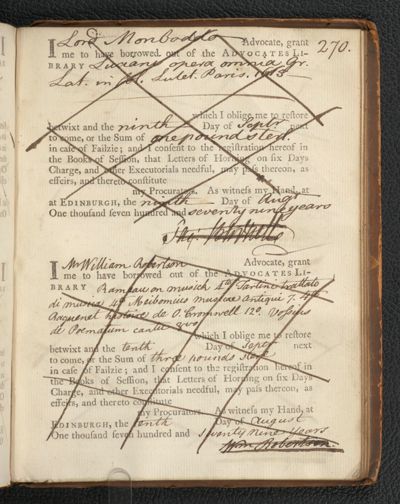 270.
I Lord Monboddo Advocate, grant
me to have borrowed out of the ADVOCATES LI-
BRARY Luciani opera omnia Gr.
Lat. in fol. Lutet. Paris. 1615
which I oblige me to restore
betwixt and the ninth Day of Septr next
to come, or the Sum of one pound sterl.
in case of Failzie; and I consent to the registration hereof in
the Books of Session, that Letters of Horning on six Days
Charge, and other Executorials needful, may pass thereon, as
effeirs, and thereto constitute
my Procurators. As witness my Hand, at
at EDINBURGH, the ninth Day of Augt
One thousand seven hundred and seventy nine years
I Mr William Robertson Advocate, grant
me to have borrowed out of the ADVOCATES LI-
BRARY Rameau on musick 4o Tartini Trattato
di musica 4o Meibomius musicae Antiquae 7. 4o
Raguenet histoire de O. Cromwell 12o. Vossius
de Poematum cantu 8vo
which I oblige me to restore
betwixt and the tenth Day of Septr next
to come, or the Sum of three pounds sterl
in case of Failzie; and I consent to the registration hereof in
the Books of Session, that Letters of Horning on six Days
Charge, and other Executorials needful, may pass thereon, as
effeirs, and thereto constitute
my Procurators. As witness my Hand, at
EDINBURGH, the tenth Day of August
One thousand seven hundred and seventy nine years
Wm. Robertson